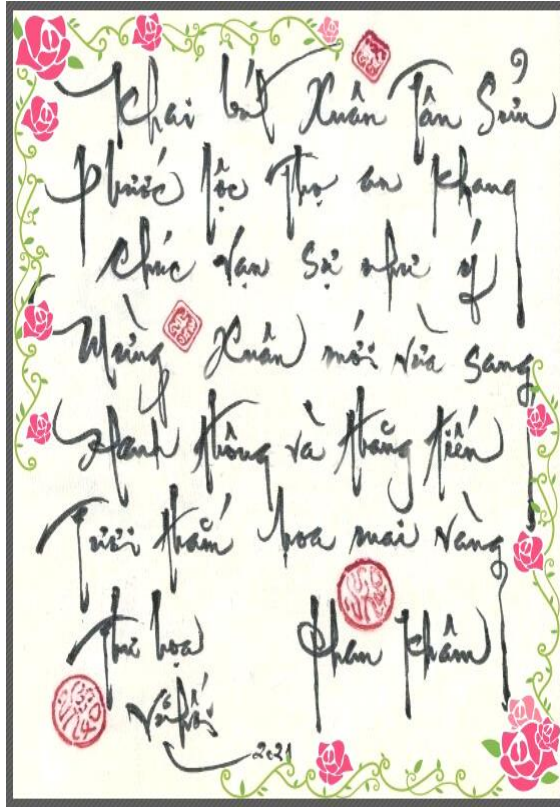 Khai bút Xuân Tân Sửu
Phước lộc thọ an khang
Chúc vạn sự như ý
Mừng Xuân mới vừa sang
Hanh thông và thăng tiến
Tươi thắm hoa mai vàng
Thi họa Phan Khâm
Vũ Hối
2021